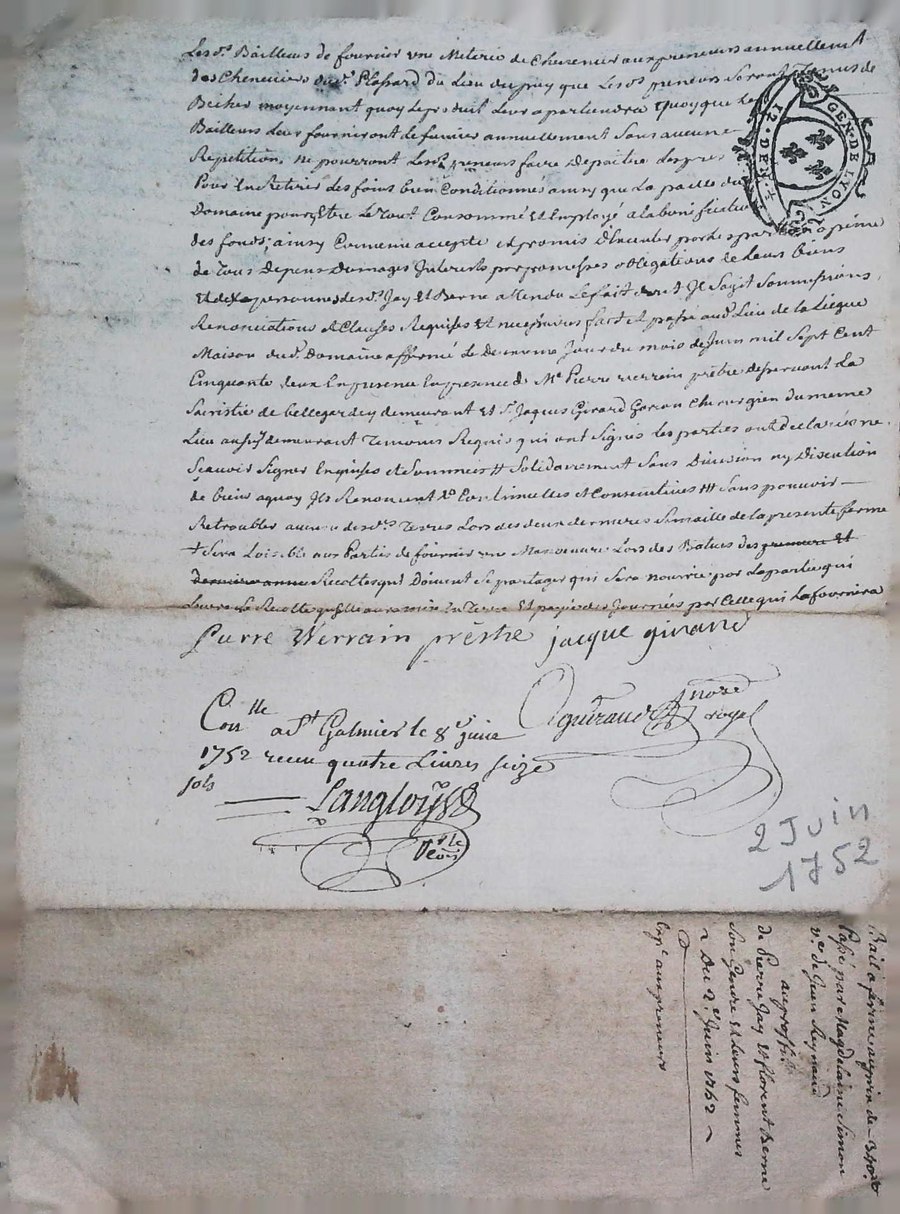 Lesd.s Bailleurs de fournir une Meterie de Chenevier aux preneurs annuellem.t
des Cheneviers du d.t Plassard du Lieu du puy que Lesd.s preneurs Seront Tenus de
Bécher moyennant quoy Le produit Leur apartiendra Quoyque Les
Bailleurs Leur fourniront Le fumier annuellement Sans aucune
Repetition, ne pourront Lesd.s preneurs faire Depaitre des prés
Pour En Retirer des foins bien Conditionnés ainsy que La paille du
Domaine pour Etre Le Tout Consommé Et Employé a la boniffication
des fonds; ainsy Convenu accepté et promis D'Executer par Les parties a peine
de Tous Depens Domages Interests par promesses obligations de Leurs biens
Et de personnes des d.s Jay Et Berne attendu Le fait dont Il Sagit Soumissions
Renonciations et Clauses Requises Et necessaires fait et passé aud. Lieu de la Liegue
Maison du d. Domaine affermé Le Deuxieme Jour du mois de Juin mil Sept Cent
Cinquante deux En presence En presence de M.e Pierre verrain prêtre desservant La
Sacristie de bellegarde y demeurant Et S.r Jaques Girard Garçon Chirurgien du meme
Lieu aussy demeurant Temoins Requis qui ont Signés les parties ont declaré ne
Scavoir Signer Enquises et Sommées # Solidairement Sans Division ny Discution
de biens a quoy Ils Renoncent Continuelles et Consecutives # Sans pouvoir
Retroubler aucune des d.s Terres Lors des deux dernieres Semaille de la presente ferme
+ Sera Loisible aux Parties de fournir une Manoeuvre Lors des Batues des premiere Et
derniere année Recoltes qui Doivent Se partager qui Sera nourrie par La partie qui
Levera La Recolte quelle aura mise En Terre Et payée des Journées par Celle qui La fournira
Pierre Verrain prêstre jacque girard
Aguiraud No.re royal
Con.lle a S.t Galmier le 8.e juin
1752 receu quatre Livres seize
sols
Langloÿs
GEN. DE LYON
2 Juin
1752
Bail a ferme au prix de
Passé par Magdelaine Simon
v.e de Jean Reynaud
au proffit
de Pierre Jay Et florent Berne
Son Gendre Et Leurs femmes
Du 2.e Juin 1752
Exp.n aux preneurs